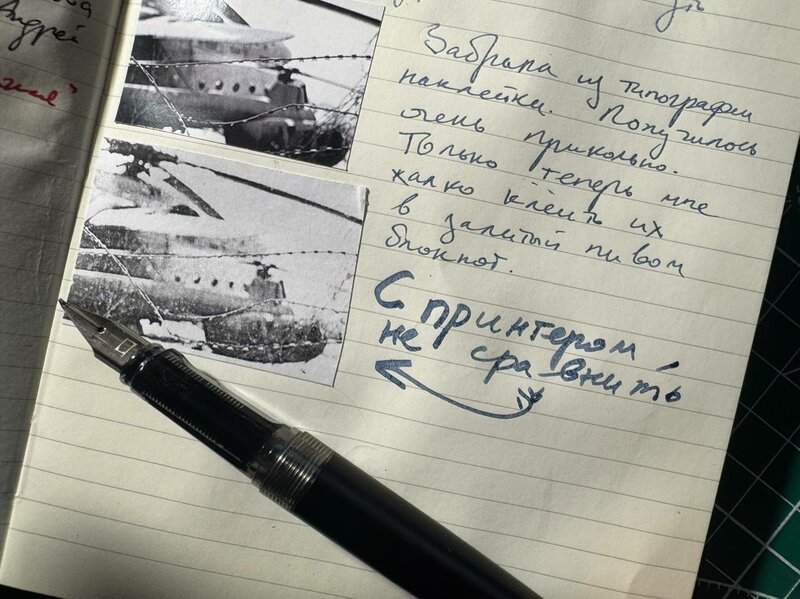 Андрей
Забрала из типографии
наклейки. Получилось
очень прикольно.
Только теперь мне
жалко клеить их
в залитый пивом
блокнот.
С принтером
не сравнить